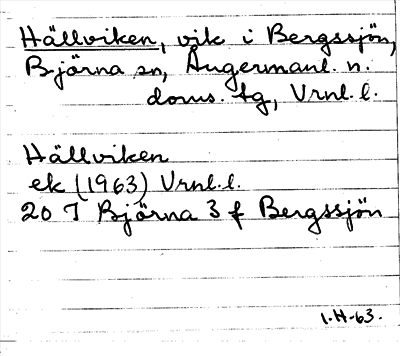 Hällviken, vik i Bergssjön,
Björna sn, Ångermanl. n.
doms. tg, Vrnl. l.
Hällviken
ek (1963) Vrnl. l.
20 I Björna 3 f Bergssjön
I.H-63.